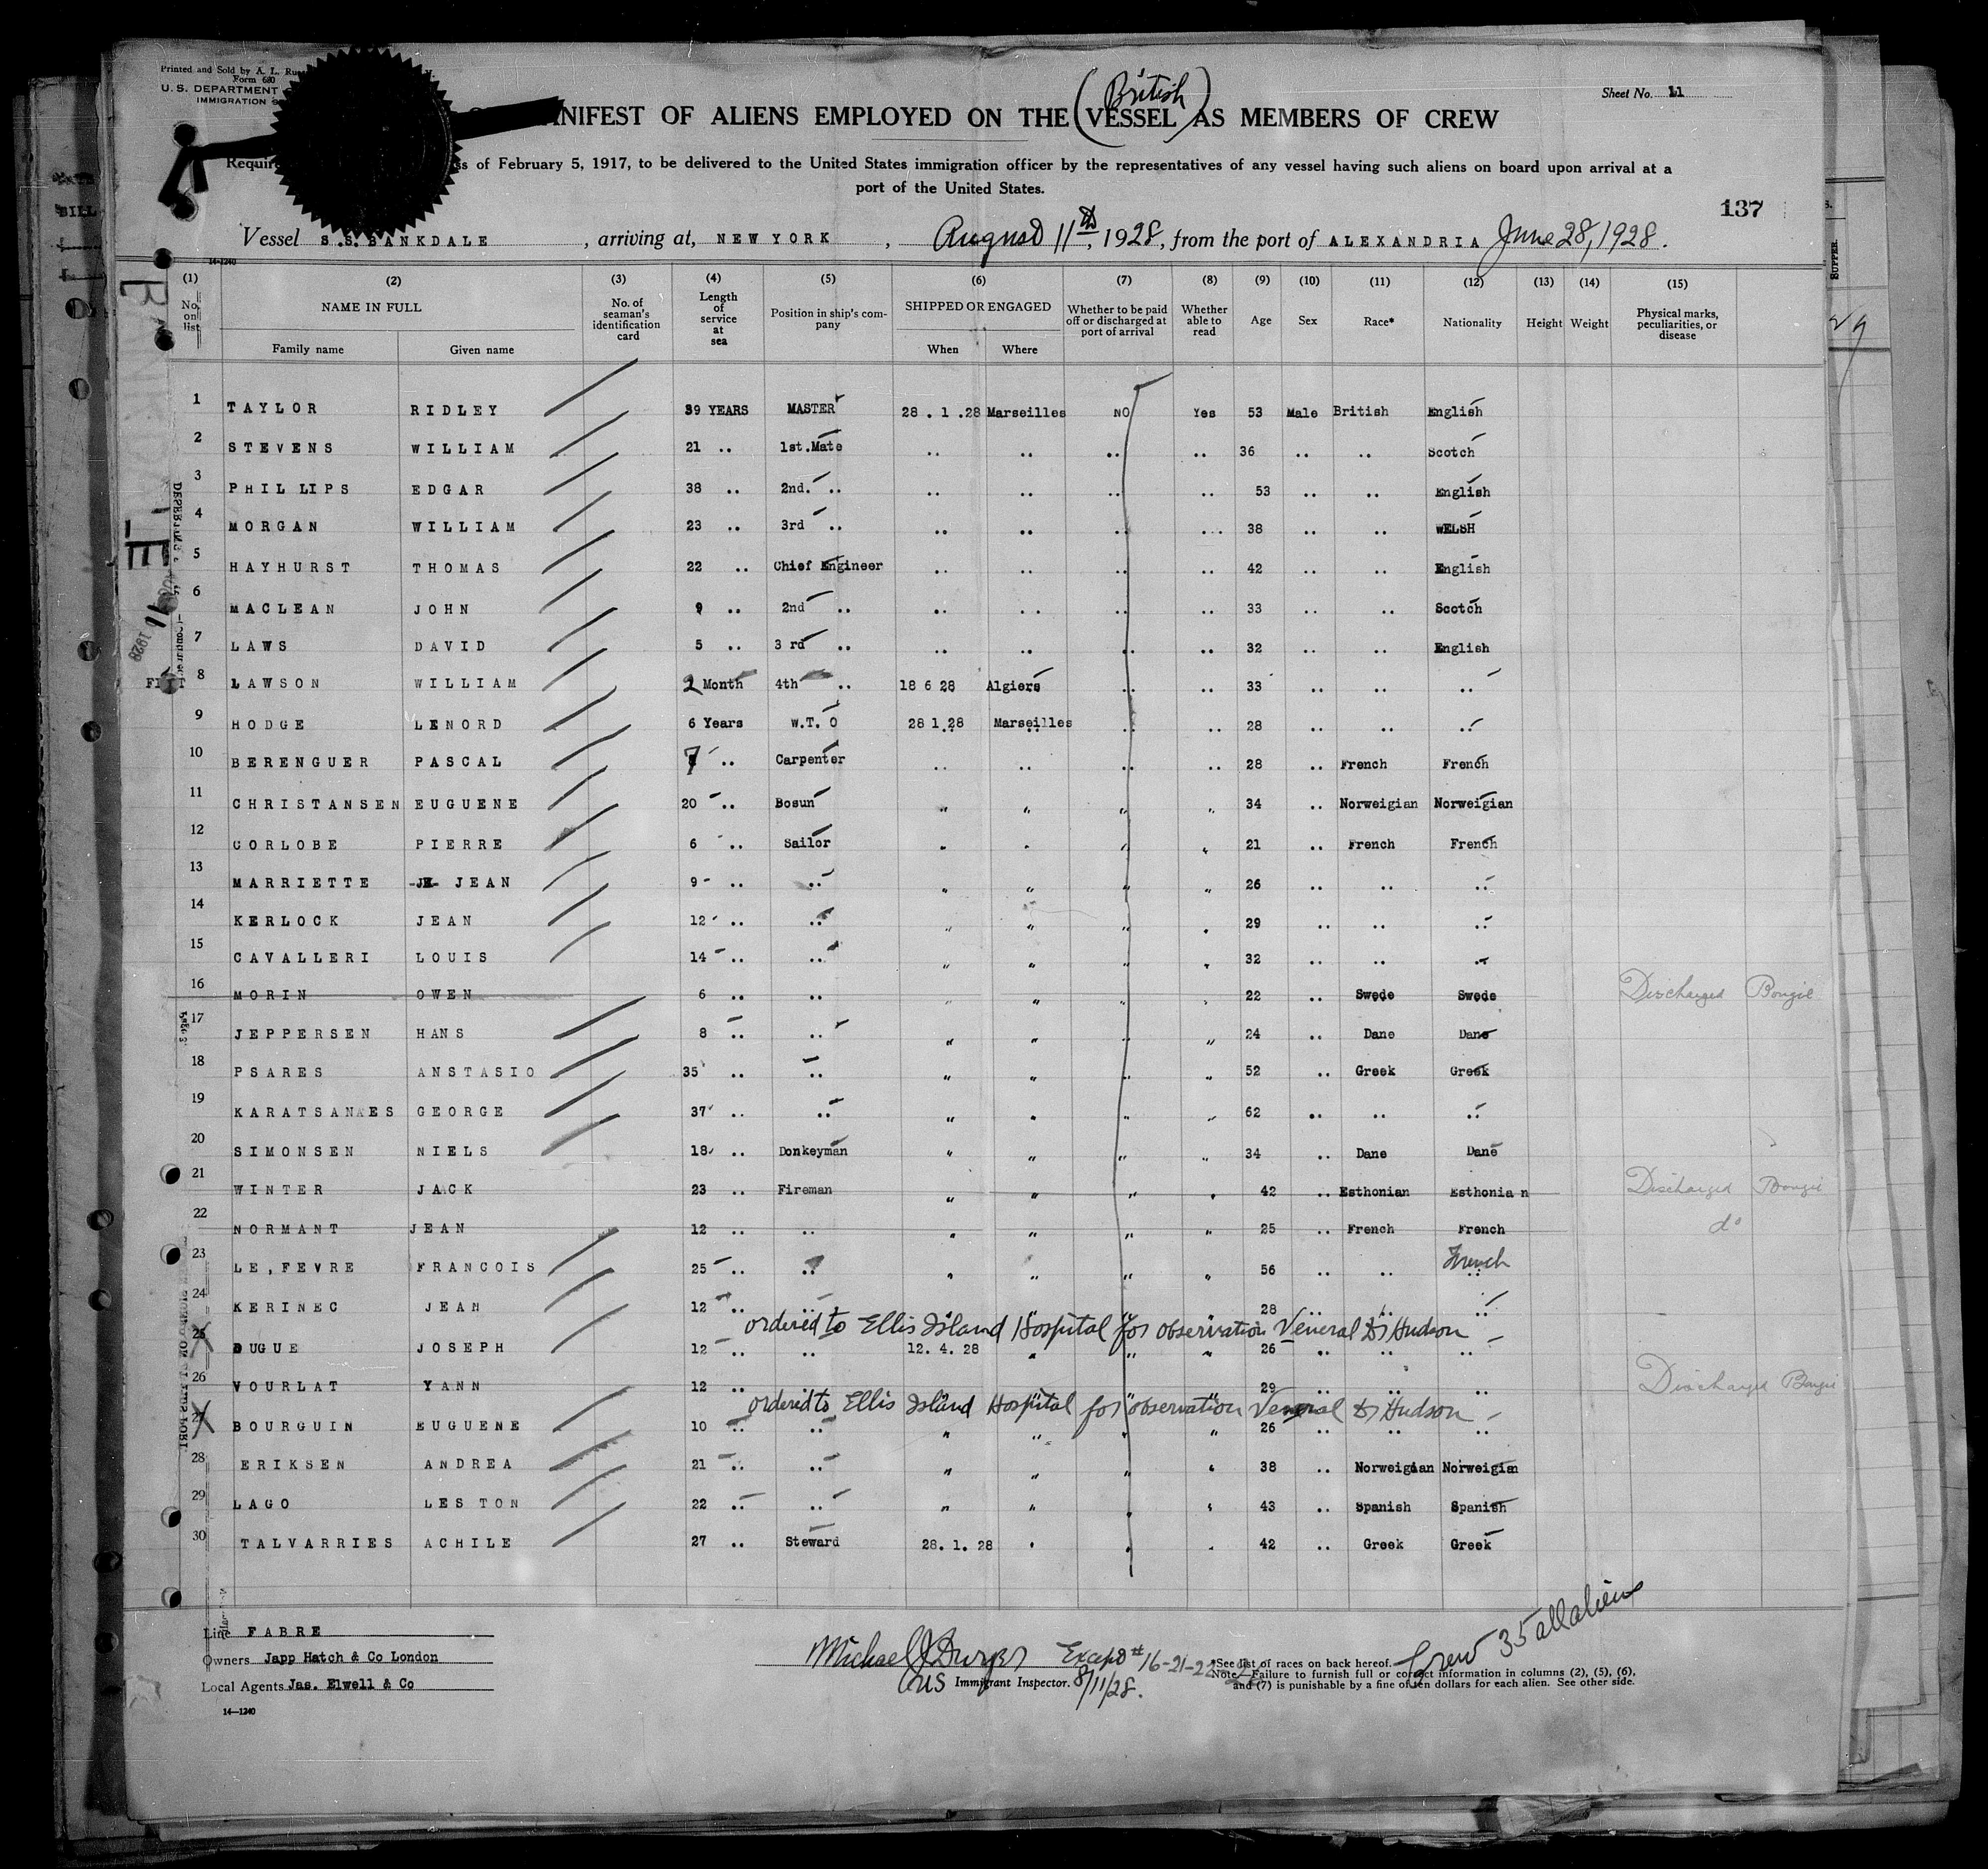 Printed and Sold by A. L.
Form 680
U. S. DEPARTMENT
IMMIGRATION
Sheet No. 11
(British)
MANIFEST OF ALIENS EMPLOYED ON THE VESSEL AS MEMBERS OF CREW
of February 5, 1917, to be delivered to the United States immigration officer by the representatives of any vessel having such aliens on board upon arrival at a
port of the United States.
137
Vessel S.S.BANKDALE, arriving at, NEW YORK, August 11th, 1928, from the port of ALEXANDRIA June 28, 1928.
14-1240
(1) (2) (3) (4) (5) (6) (7) (8) (9) (10) (11) (12) (13) (14) (15)
No. on list NAME IN FULL No. of seaman's identification card Length of service at sea Position in ship's company SHIPPED OR ENGAGED Whether to be paid off or discharged at port of arrival Whether able to read Age Sex Race* Nationality Height Weight Physical marks, peculiarities, or disease
Family name Given name When Where
1 TAYLOR RIDLEY 39 YEARS MASTER 28.1.28 Marseilles NO Yes 53 Male British English
2 STEVENS WILLIAM 21 .. 1st.Mate .. .. .. .. 36 .. .. Scotch
3 PHILLIPS EDGAR 38 .. 2nd. .. .. .. .. .. 53 .. .. English
4 MORGAN WILLIAM 23 .. 3rd .. .. .. .. .. 38 .. WELSH
5 HAYHURST THOMAS 22 .. Chief Engineer .. .. .. .. 42 .. .. English
6 MACLEAN JOHN 9 .. 2nd .. .. .. .. .. 33 .. .. Scotch
7 LAWS DAVID 5 .. 3 rd .. .. .. .. .. 32 .. .. English
8 LAWSON WILLIAM 2 Month 4th .. 18 6 28 Algiers .. .. 33 .. .. ..
9 HODGE LENORD 6 Years W.T. O 28 1 28 Marseilles .. .. 28 .. .. ..
10 BERENGUER PASCAL 7 .. Carpenter .. .. .. .. 28 .. French French
11 CHRISTANSEN EUGUENE 20 .. Bosun " " " " 34 .. Norweigian Norweigian
12 CORLOBE PIERRE 6 .. Sailor " " " " 21 .. French French
13 MARRIETTE JEAN 9 .. .. " " " " 26 .. .. ..
14 KERLOCK JEAN 12 .. .. " " " " 29 .. .. ..
15 CAVALLERI LOUIS 14 .. .. " " " " 32 .. .. ..
16 MORIN OWEN 6 .. .. " " " " 22 .. Swede Swede Discharged Bougie
17 JEPPERSEN HANS 8 .. .. " " " " 24 .. Dane Dane
18 PSARES ANSTASIO 35 .. .. " " " " 52 .. Greek Greek
19 KARATSANAES GEORGE 37 .. .. " " " " 62 .. .. ..
20 SIMONSEN NIELS 18 .. Donkeyman " " " " 34 .. Dane Dane
21 WINTER JACK 23 .. Fireman " " " " 42 .. Esthonian Esthonian Discharged Bougie
22 NORMANT JEAN 12 .. .. " " " " 25 .. French French do
23 LE,FEVRE FRANCOIS 25 .. .. " " " " 56 .. .. French
24 KERINEC JEAN 12 .. .. " " " " 28 .. .. ..
ordered to Ellis Island Hospital for observation Veneral Dr Hudson
25 DUGUE JOSEPH 12 .. .. 12. 4. 28 " " " 26 .. .. ..
26 VOURLAT YANN 12 .. .. " " " " 29 .. .. .. Discharged Bougie
ordered to Ellis Island Hospital for observation Veneral Dr Hudson
27 BOURGUIN EUGUENE 10 .. .. " " " " 26 .. .. ..
28 ERIKSEN ANDREA 21 .. .. " " " " 38 .. Norweigian Norweigian
29 LAGO LESTON 22 .. .. " " " " 43 .. Spanish Spanish
30 TALVARRIES ACHILE 27 .. Steward 28. 1. 28 " " " 42 .. Greek Greek
Line FABRE
Owners Japp Hatch & Co London
Local Agents Jas. Elwell & Co
14—1240
Except # 16-21-22
Immigrant Inspector. 8/11/28.
Crew 35 all aliens
*See list of races on back hereof.
Note.—Failure to furnish full or correct information in columns (2), (5), (6),
and (7) is punishable by a fine of ten dollars for each alien. See other side.